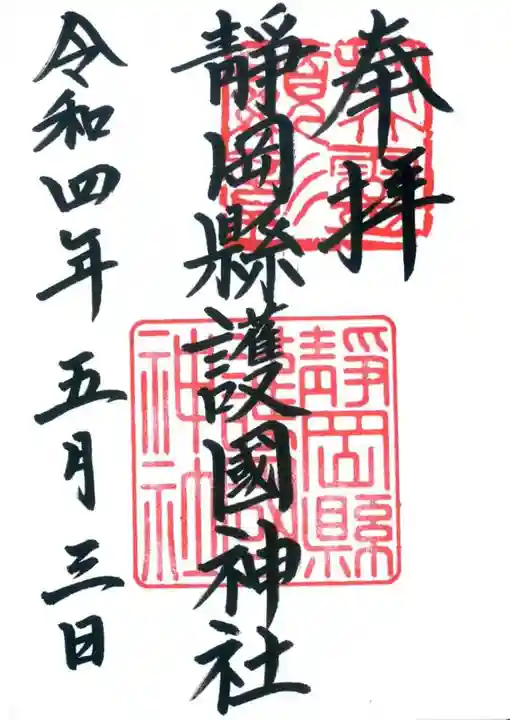 奉拝
靜岡縣護國神社
令和四年五月三日
靜岡縣護國神社